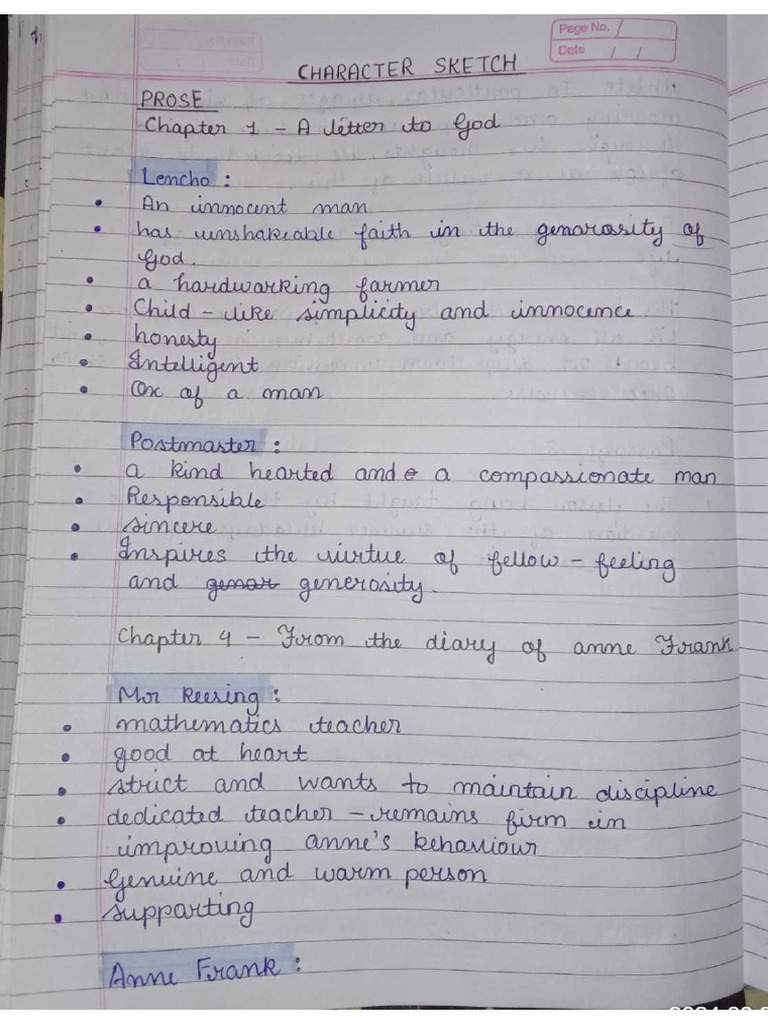 Page No. /
Date / /
CHARACTER SKETCH
PROSE
Chapter 1 - A letter to God
Lencho :
• An innocent man
• has unshakeable faith in the genarosity of
God.
• a hardwarking farmer
• Child - like simplicity and innocence
• honesty
• Intelligent
• Ox of a man
Postmaster :
• a kind hearted and a compassionate man
• Responsible
• sincere
• Inspires the virtue of fellow - feeling
and genar generosity.
Chapter 4 - From the diary of anne Frank
Mr Keesing :
• mathematics teacher
• good at heart
• strict and wants to maintain discipline
• dedicated teacher - remains firm in
improving anne's behaviour
• Genuine and warm person
• supporting
Anne Frank :